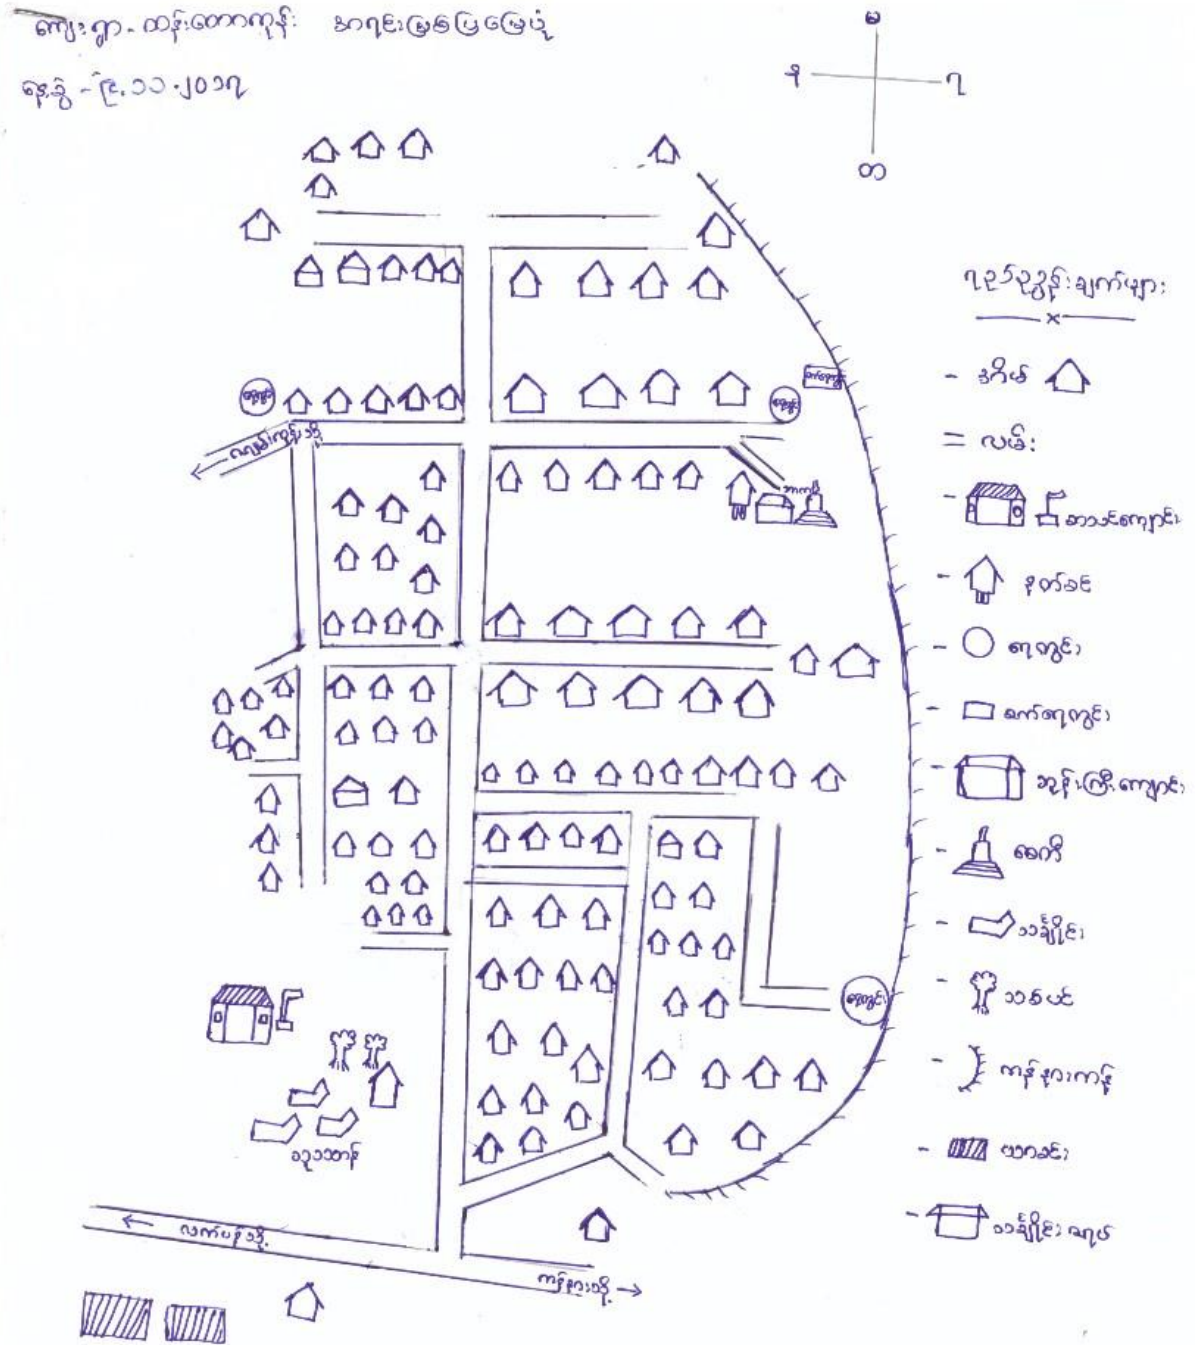 ကျေးရွာ - ထန်းတောကုန်း အရင်းမြစ်ပြမြေပုံ
နေ့စွဲ - ၉.၁၁.၂၀၁၇
မ
န
ရ
တ
ရည်ညွှန်းချက်များ
- အိမ်
= လမ်း
- စာသင်ကျောင်း
- နတ်ခင်
- ရေတွင်း
- စက်ရေတွင်း
- ဘုန်းကြီးကျောင်း
- စေတီ
- သင်္ချိုင်း
- သစ်ပင်
- ကန်နားကန်
- ယာခင်း
- သင်္ချိုင်းဇရပ်
ရေတွင်း
စက်ရေတွင်း
ရေတွင်း
ရေတွင်း
လက်ပန်သို့
ကန်နားသို့